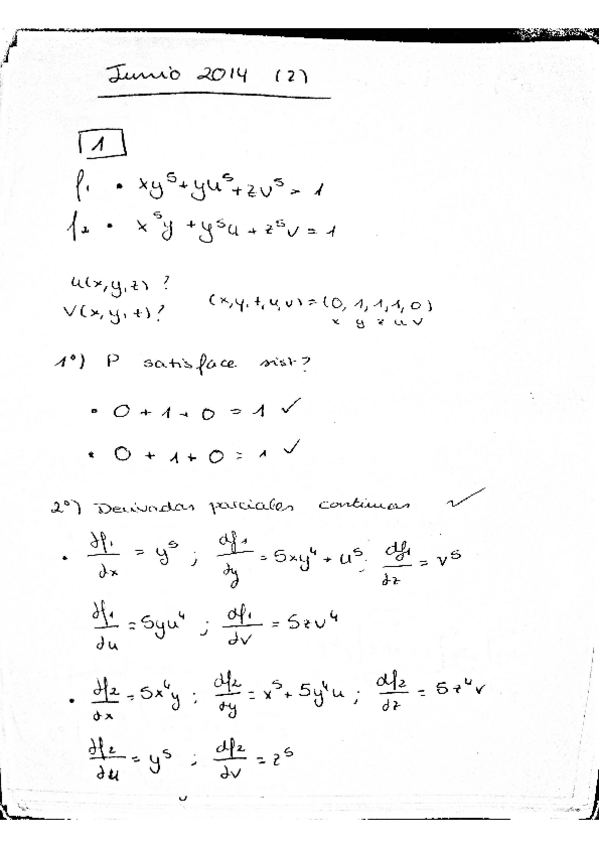 Junio 2014 (2)
1
f₁ • xy⁵+yu⁵+zv⁵ = 1
f₂ • x⁵y + y⁵u + z⁵v = 1
u(x,y,z) ?
v(x,y,z)?
(x,y,z,u,v) = (0, 1, 1, 1, 0)
x y z u v
1º) P satisface sist?
• 0 + 1 + 0 = 1 ✓
• 0 + 1 + 0 = 1 ✓
2º) Derivadas parciales continuas ✓
• ∂f₁/∂x = y⁵ ; ∂f₁/∂y = 5xy⁴ + u⁵ ; ∂f₁/∂z = v⁵
∂f₁/∂u = 5yu⁴ ; ∂f₁/∂v = 5zv⁴
• ∂f₂/∂x = 5x⁴y ; ∂f₂/∂y = x⁵ + 5y⁴u ; ∂f₂/∂z = 5z⁴v
∂f₂/∂u = y⁵ ; ∂f₂/∂v = z⁵